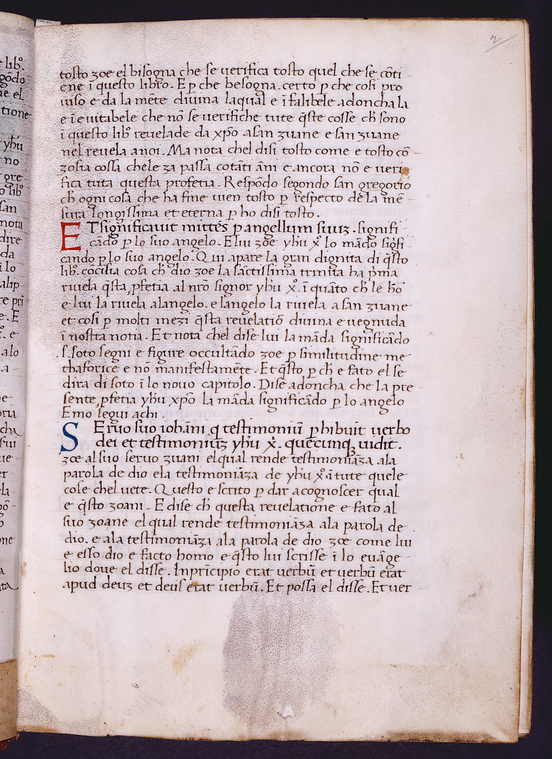 tosto zoe el bisogna che se uerifica tosto quel che se cōti
ene i questo libro. E p che besogna. certo p che cosi pro
uiso e da la mēte diuina laqual e ifalibele adoncha la
e ieuitabele che nō se uerifiche tute q̄ste cosse ch̄ sono
i questo lib᷒ reuelade da xp̄o a san zuane e san zuane
nel reuela anoi. Ma nota chel disi tosto come e tosto cō
zosia cossa chele za passa cotāti āni e ancora nō e ueri
fica tuta questa profetia. Respōdo segondo san gregorio
ch ogni cosa che ha fine uien tosto p respecto de la mē
sura longissima et eterna p ho disi tosto.
ET significauit mittēs p angellum suuz. signifi
cādo p lo suo angelo. E lui zōe yhu x̄ lo mādo sigfi
cando p lo suo angelo. Qui apare la gran dignita di q̄sto
lib᷒. cōcisia cosa ch̄ dio zoe la sāctissima trinita ha p̄ma
riuela q̄sta p̄fetia al nr̄o signor yhu x̄. i quāto ch̄ le hō
e lui la riuela alangelo. e langelo la riuela a san zuane
et cosi p molti mezi q̄sta reuelatiō diuina e uegnuda
i nostra notia. Et nota chel dise lui la māda significādo
.s. soto segni e figure occultādo zoe p similitudine me
thaforice e nō manifestamēte. Et q̄sto p ch̄ e fato el se
dira di soto i lo nouo capitolo. Dise adoncha che la pre
sente p̄fetia yhu xp̄o la māda significādo p lo angelo
E mo segui achi.
SEruo suo iohāni q testimoniū phibuit uerbo
dei et testimoniuz yhu x̄. quecunq, uidit.
zōe al suo seruo zuani el qual rende testimoniāza ala
parola de dio ela testimoniāza de yhu x̄ i tute quele
cose chel uete. Questo e scrito p dar acognoscer qual
e q̄sto zoani. E dise ch̄ questa reuelatione e fato al
suo zoane el qual rende testimoniāza ala parola de
dio. e ala testimoniāza ala parola de dio zoe come lui
e esso dio e facto homo e q̄sto lui scrisse i lo euāge
lio doue el disse. In pricipio erat uerbū et uerbū erat
apud deuz et deus erat uerbū. Et possa el disse. Et uer